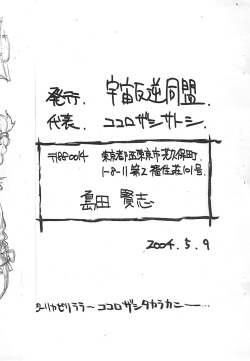 発行. 宇宙反逆同盟.
代表. ココロザシサトシ.
〒188-0014 東京都西東京市芝久保町
1-8-11 第2 住荘101号.
島田 賢志
2004.5.9
ココロザシタカラカニー…